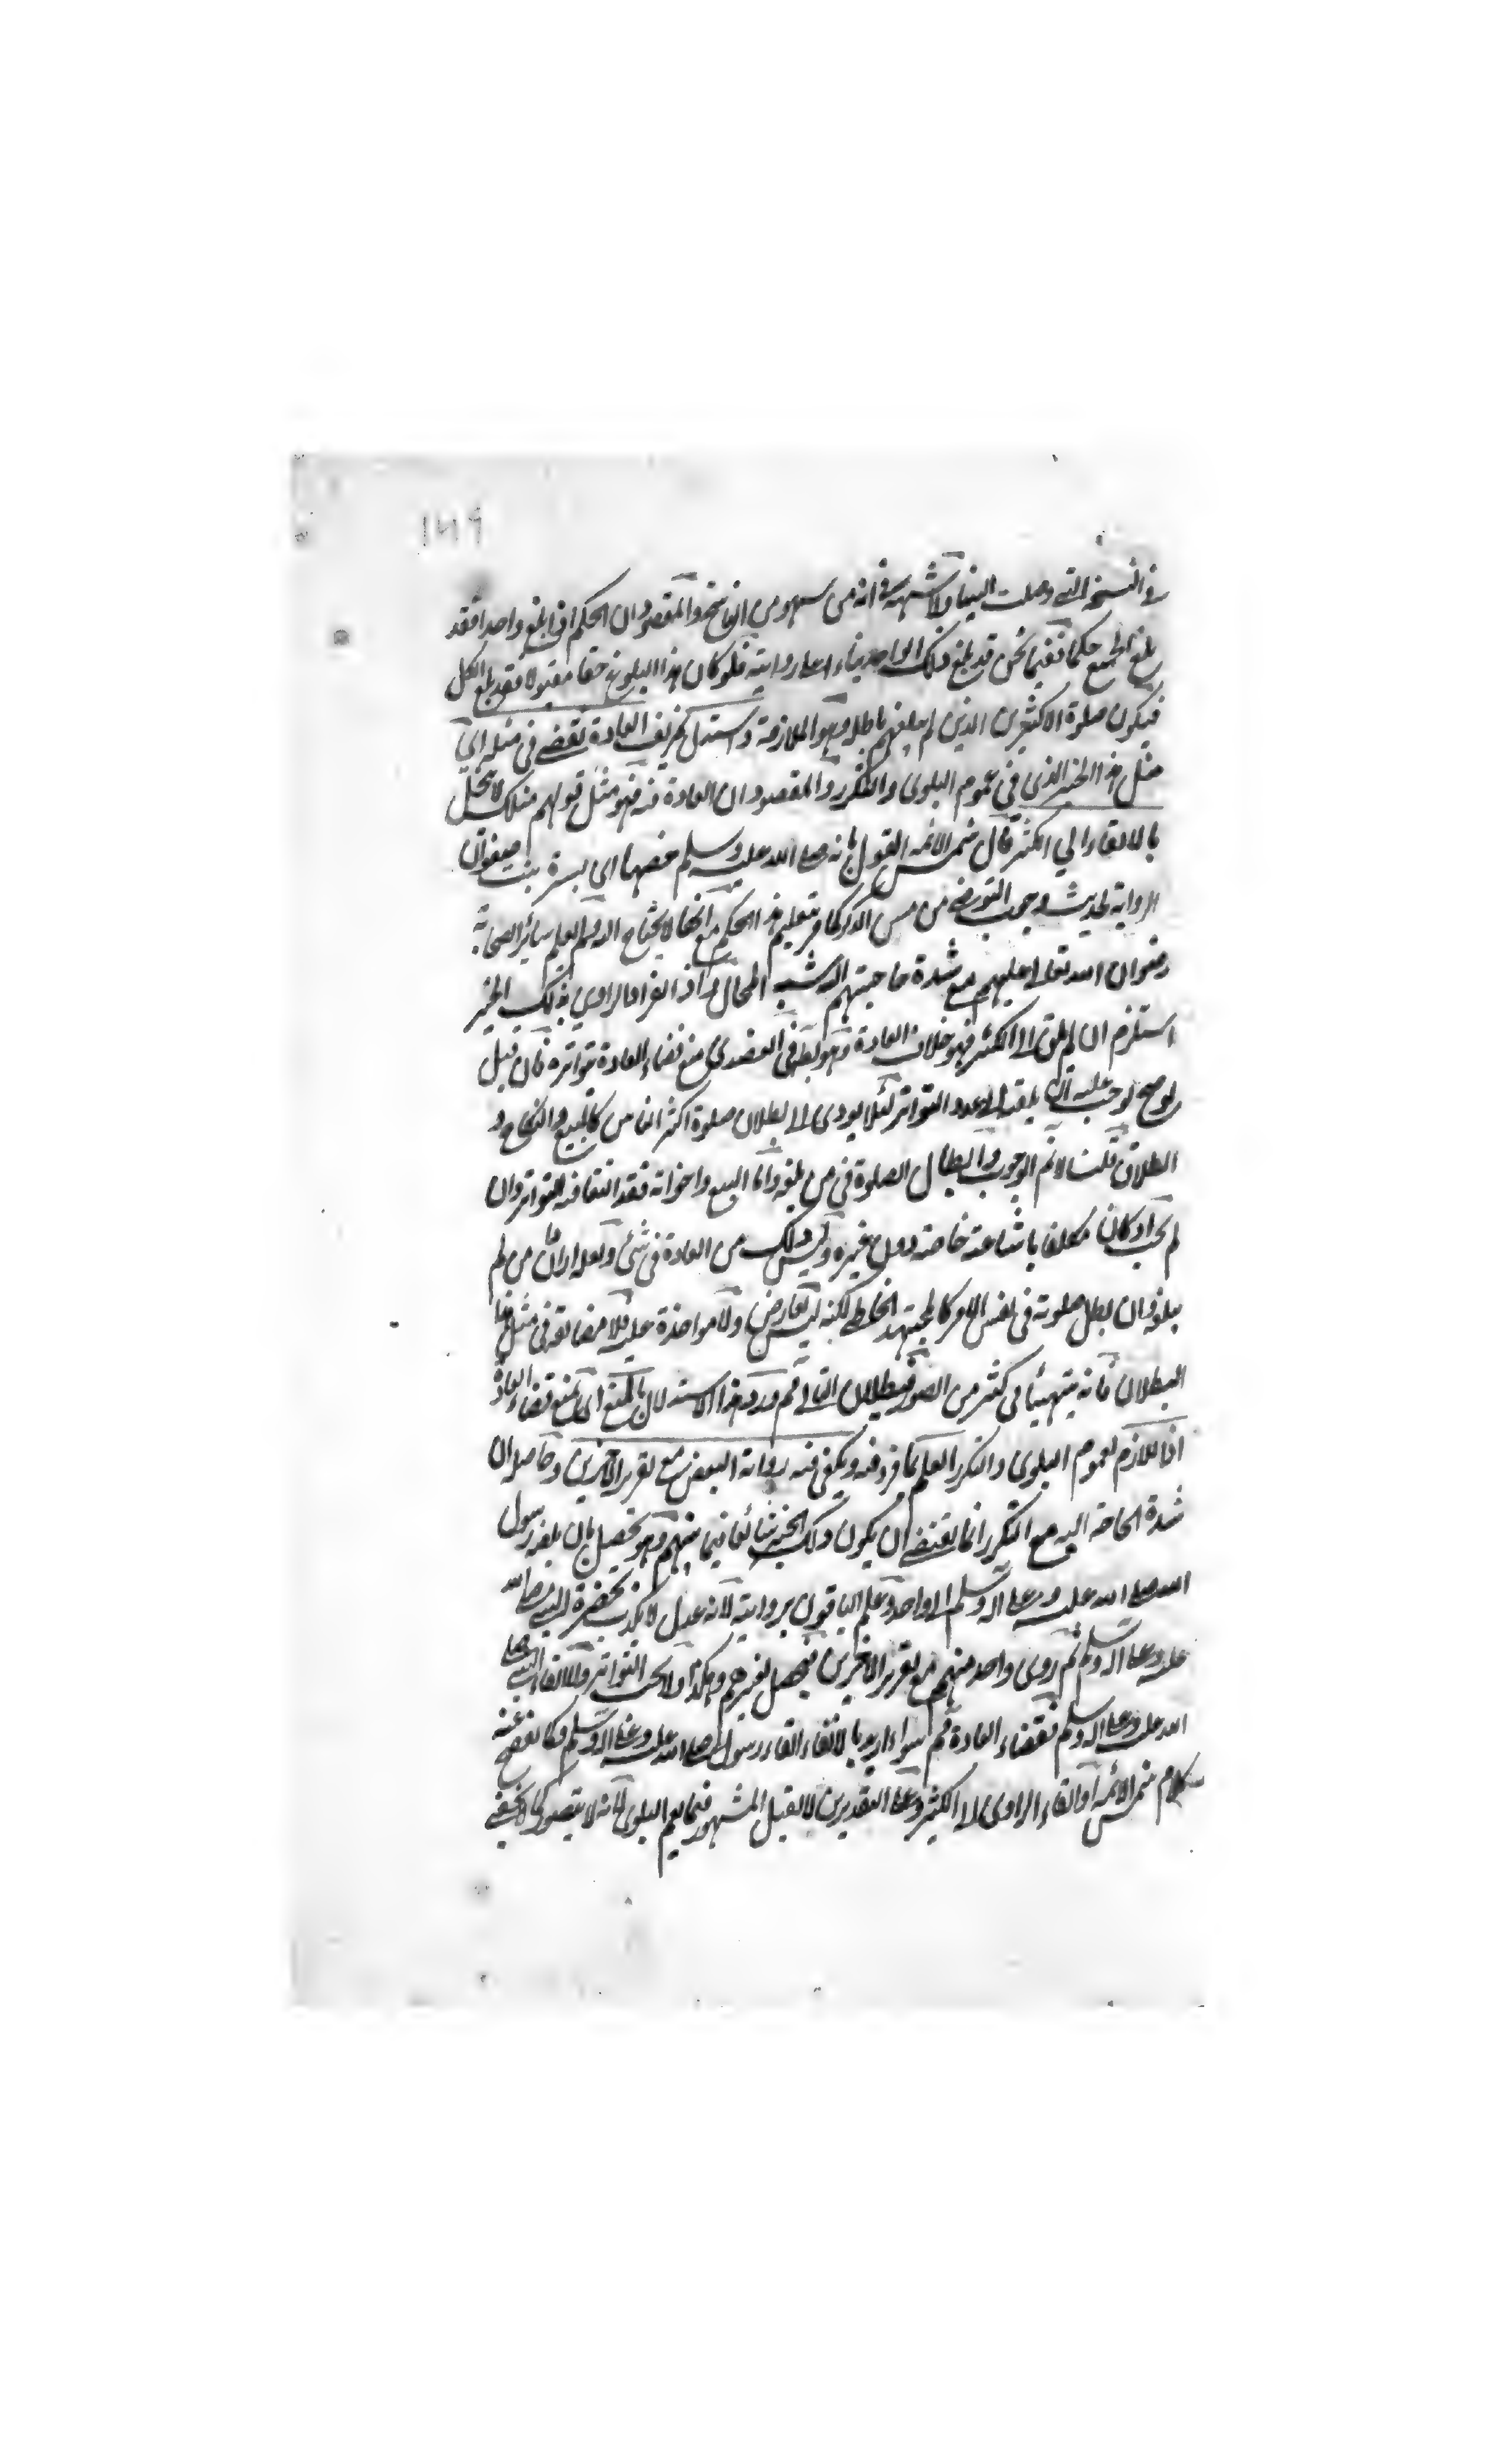 ١٣٩
في النسخة التي وصلت الينا ولا شبهة في انه من سهو من الناسخ والمقصود ان الحكم اذا بلغ واحدا فقد
بلغ الجميع حكما ففيما نحن قد بلغ ذلك الواحد بناء على روايته فلو كان هذا البلوغ حقا مقبولا فقد بلغ الكل
فيكون صلوة الاكثرين الذين لم يبلغهم باطلا وهو الملازمة واستدل بحريف العادة تقضي في مثله اي
مثل هذا الخبر الذي في عموم البلوى والتكرر والمقصود ان العادة فيه فهو مثل قولهم مثلك لا يبخل
بالالقاء الي الكثير قال شمس الائمة القول بانه صلى الله عليه وسلم خصها اي بسرة بنت صفوان
الرواية لحديث وجوب التوضي من مس الذكر كما مر بتعليم هذا الحكم مع انها لا يحتاج اليه ولم يعلم سائر الصحابة
رضوان الله تعالى عليهم مع شدة حاجتهم اليه شبه المحال واذا انفراد الراوي بذلك الخبر
استلزم ان لم يلق الى الكثير فهو خلاف العادة وهو يظهر في العضدي منع قضاء العادة بتواتره فان قيل
لو صح لوجب عليه ان يلقيه الى عدد التواتر لئلا يودى الى بطلان صلوة اكثر الناس كالبيع والنكاح و
الطلاق قلت لا نم الوجوب وابطال الصلوة في من بلغه واما البيع واخواته فقد اتفقا فيه التواتر وان
لم يجب او كان مكلفا باشاعته خاصة دون غيره وليس ذلك من العادة في شئ ولعله اراد ان من لم
يبلغه وان بطل صلوته في نفس الامر كالمجتهد المخطي لكنه ليس بعارض ولا مواخذة عليه فلا مضايقة في مثل هذا
البطلان فانه يتهيئا في كثير من الصور فبطلان التالي ثم ورد هذا الاستدلال بالمنع اي بمنع قضاء العادة
اذ اللازم لعموم البلوى والتكرر العلم بما فرد فيه ويكفي فيه رواية البعض مع تقرير الآخرين وحاصله ان
شدة الحاجة اليه مع التكرر انما تقتضي ان يكون ذلك الخبر شائعا فيما بينهم وهو يحصل بان بلغه رسول
الله صلى الله عليه وعلى اله وسلم الى واحد وعلم الباقون بروايته لانه عدل لا يكذب بحضرة النبي صلى الله
عليه وعلى اله وسلم ثم روى واحد منهم مع تقرير الاخرين فيحصل لغيرهم وهكذا ولا يجب التواتر والالقاء النبي صلى
الله عليه وعلى اله وسلم فقضاء العادة ثم سواء اريد بالالقاء القاء رسول الله صلى الله عليه وعلى اله وسلم وكما يفصح عنه
كلام شمس الائمة او القاء الراوى الى الكثير وعلى التقديرين لا يقبل المشهور فيما يعم البلوى لانه لا يتصور كما لا يخفى